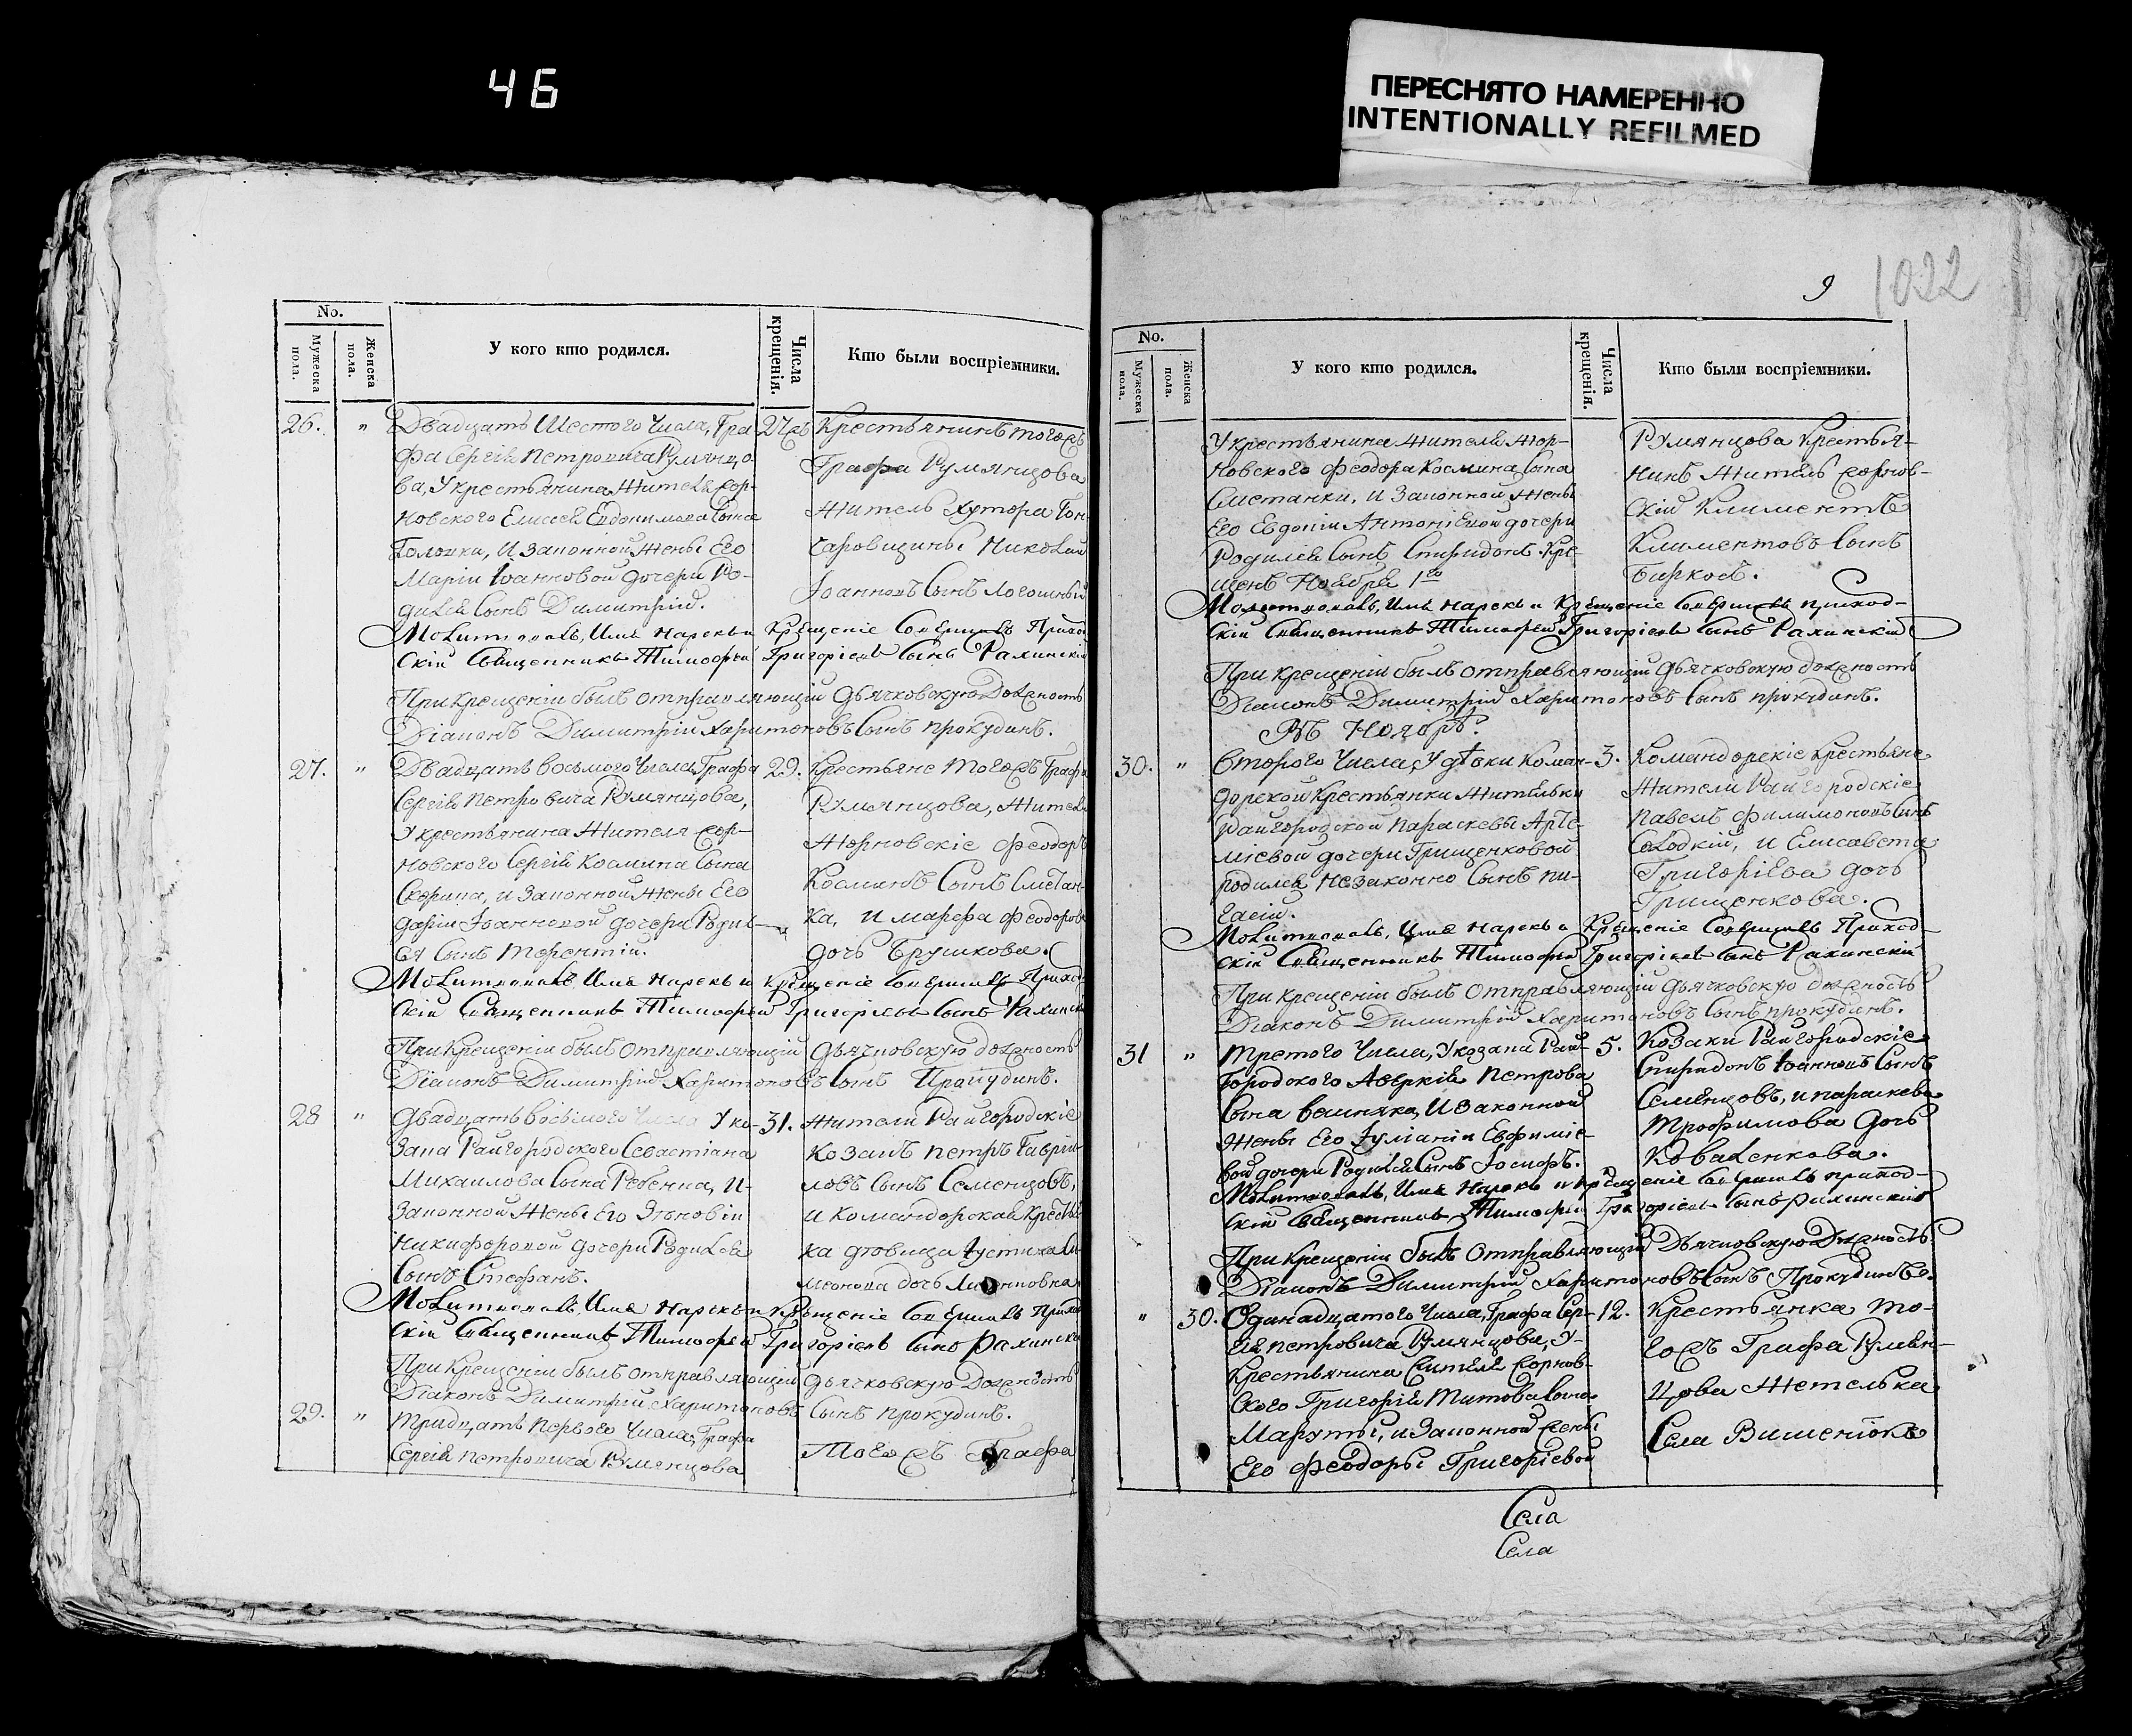 46
ПЕРЕСНЯТО НАМЕРЕННО
INTENTIONALLY REFILMED
No.
Мужеска пола.
Женска пола.
У кого кто родился.
Числа крещенія.
Кто были воспріемники.
26. " Двадцать Шестого Числа, Гра-
фа Сергія Петровича Румянцо-
ва, У крестьянина Жителя жор-
новского Елисея Евдокимова Сына
Голошки, И Законной Жены Его
Маріи Іоанновой дочери Ро-
дился Сынъ Димитрій.
27жъ Крестьянинъ тогожъ
Графа Румянцова
Житель Хутора Гон-
чаровщины Николай
Іоанновъ Сынъ Логошный
Молитвовалъ, Имя Нарекъ и Крещеніе Совершилъ Приход-
скій Священникъ Тимофей Григоріевъ Сынъ Рахинскій
При Крещеніи былъ отправляющій Дьячковскую Должность
Діаконъ Димитрій Харитоновъ Сынъ прокудинъ.
27. " Двадцать восьмого Числа, Графа
Сергія Петровича Румянцова,
У крестьянина Жителя жор-
новского Сергія Космина Сына
Скорика, и Законной Жены Его
Даріи Іоанновой дочери Родил-
ся Сынъ Терентій.
29. Крестьяне Тогожъ Графа
Румянцова, Жители
Жорновскіе Феодоръ
Косминъ Сынъ Сметан-
ка, и марфа Феодорова
дочь Брушкова.
Молитвовалъ, Имя Нарекъ и крещеніе Совершилъ Приход-
скій Священникъ Тимофей Григоріевъ Сынъ Рахинскій
При Крещеніи былъ отправляющій Дьячковскую должность
Діаконъ Димитрій Харитоновъ Сынъ Прокудинъ.
28 " Двадцать восьмого Числа У ко-
зака Райгородского Севастіана
Михаилова Сына Ребенка, И-
Законной Жены Его Зѣновіи
Никифоровой дочери Родился
Сынъ Стефанъ.
31. Жители Райгородскіе
козакъ петръ Гаврии-
ловъ Сынъ Семенцовъ,
и командорская крестьян-
ка дѣовица Іустина Си-
меонова дочь
Молитвовалъ, Имя Нарекъ и крещеніе Совершилъ Приход-
скій Священникъ Тимофей Григоріевъ Сынъ Рахинскій
При Крещеніи былъ отправляющій дьячковскую Должность
Діаконъ Димитрій Харитоновъ Сынъ прокудинъ.
29. " Тридцать Первого Числа, Графа
Сергія Петровича Румянцова
Тогожъ Графа
9
1022
No.
Мужеска пола.
Женска пола.
У кого кто родился.
Числа крещенія.
Кто были воспріемники.
У крестьянина Жителя Жор-
новского Феодора Космина Сына
Сметанки, И Законной Жены
Его Евдокіи Антоніевой дочери
Родился Сынъ Спиридонъ. Кре-
щенъ Ноября 1го
Румянцова Крестья-
нинъ Житель жорнов-
скій Климентъ
Климентовъ Сынъ
Бирков.
Молитвовалъ, Имя нарекъ и Крещеніе Совершилъ приход-
скій Священникъ Тимофей Григоріевъ Сынъ Рахинскій
При крещеніи былъ отправляющій дьячковскую должность
Діаконъ Димитрій Харитоновъ Сынъ прокудинъ.
Въ Ноябрѣ.
30. " Второго Числа, У дѣвки Коман-
дорской Крестьянки Жительки
Райгородской Параскевы Арте-
міевой дочери Грищенковой
родился незаконно Сынъ Ни-
касій.
3. Командорскіе Крестьяне
Жители Райгородскіе
Павелъ Филимоновъ Сынъ
Солодкій, и Елисавета
Григоріева дочь
Грищенкова.
Молитвовалъ, Имя Нарекъ и Крещеніе Совершилъ Приход-
скій Священникъ Тимофей Григоріевъ Сынъ Рахинскій
При крещеніи былъ Отправляющій дьячковскую должность
Діаконъ Димитрій Харитоновъ Сынъ прокудинъ.
31 " Третого Числа, У козака Рай-
городского Аверкія Петрова
Сына вешняка, И Законной
Жены Его Іуліаніи Евфиміе-
вой дочери Родился Сынъ Іосифъ.
5. Козаки Райгородскіе
Спиридонъ Іоанновъ Сынъ
Семенцовъ, и параскева
Трофимова дочь
Коваленкова.
Молитвовалъ, Имя Нарекъ и крещеніе Совершилъ приход-
скій Священникъ Тимофей Григоріевъ Сынъ рахинскій
При Крещеніи былъ Отправляющій Дьячковскую Должность
Діаконъ Димитрій Харитоновъ Сынъ Прокудинъ.
" 30. Одинадцатого Числа, Графа Сер-
гія петровича Румянцова, У-
Крестьянина Жителя жорнов-
ского Григорія Титова Сына
Маруты, и Законной жены
Его Феодоры Григоріевой
12. Крестьянка то-
гожъ Графа Румян-
цова Жителька
Села Вишенокъ
Села
Села